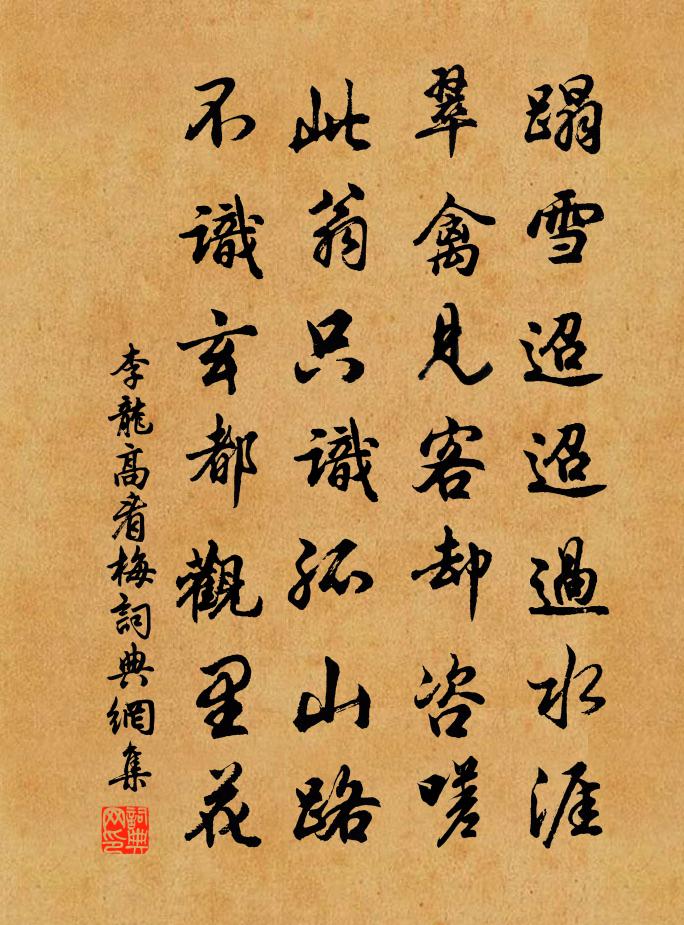 蹋雪迢迢過水涯
翠禽見客却咨嗟
此翁只識孤山路
不識玄都觀里花
李龍高看梅詞典網集
詞典网印